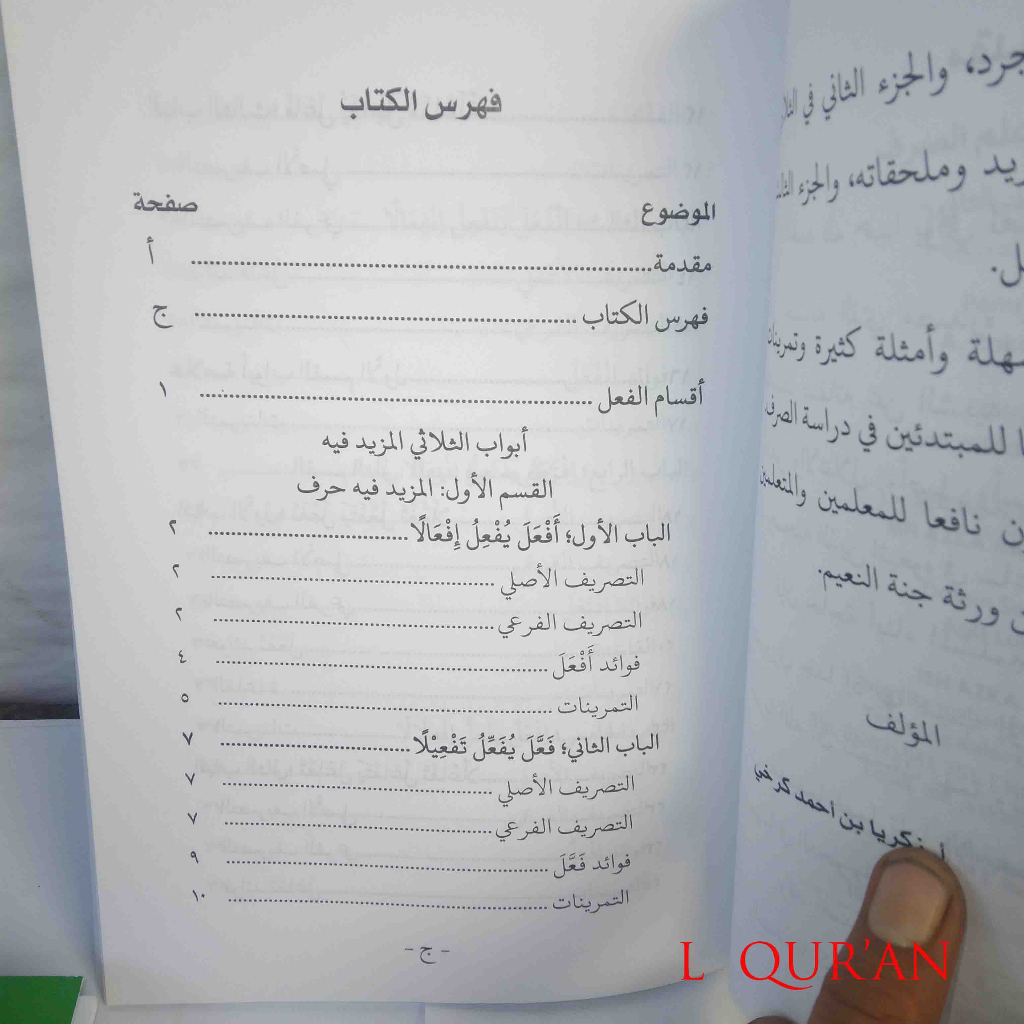 جرد، والجزء الثاني في
زيد وملحقاته، والجزء
سهلة وأمثلة كثيرة وتمرينات
للمبتدئين في دراسة الصرف،
نافعا للمعلمين والمتعلمين
ورثة جنة النعيم.
المؤلف
زكريا بن أحمد
فهرس الكتاب
الموضوع صفحة
مقدمة أ
فهرس الكتاب ج
أقسام الفعل ١
أبواب الثلاثي المزيد فيه
القسم الأول: المزيد فيه حرف
الباب الأول؛ أَفْعَلَ يُفْعِلُ إِفْعَالًا ٢
التصريف الأصلي ٢
التصريف الفرعي ٢
فوائد أَفْعَلَ ٤
التمرينات ٥
الباب الثاني؛ فَعَّلَ يُفَعِّلُ تَفْعِيْلًا ٧
التصريف الأصلي ٧
التصريف الفرعي ٧
فوائد فَعَّلَ ٩
التمرينات ١٠
- ج -
L QUR'AN